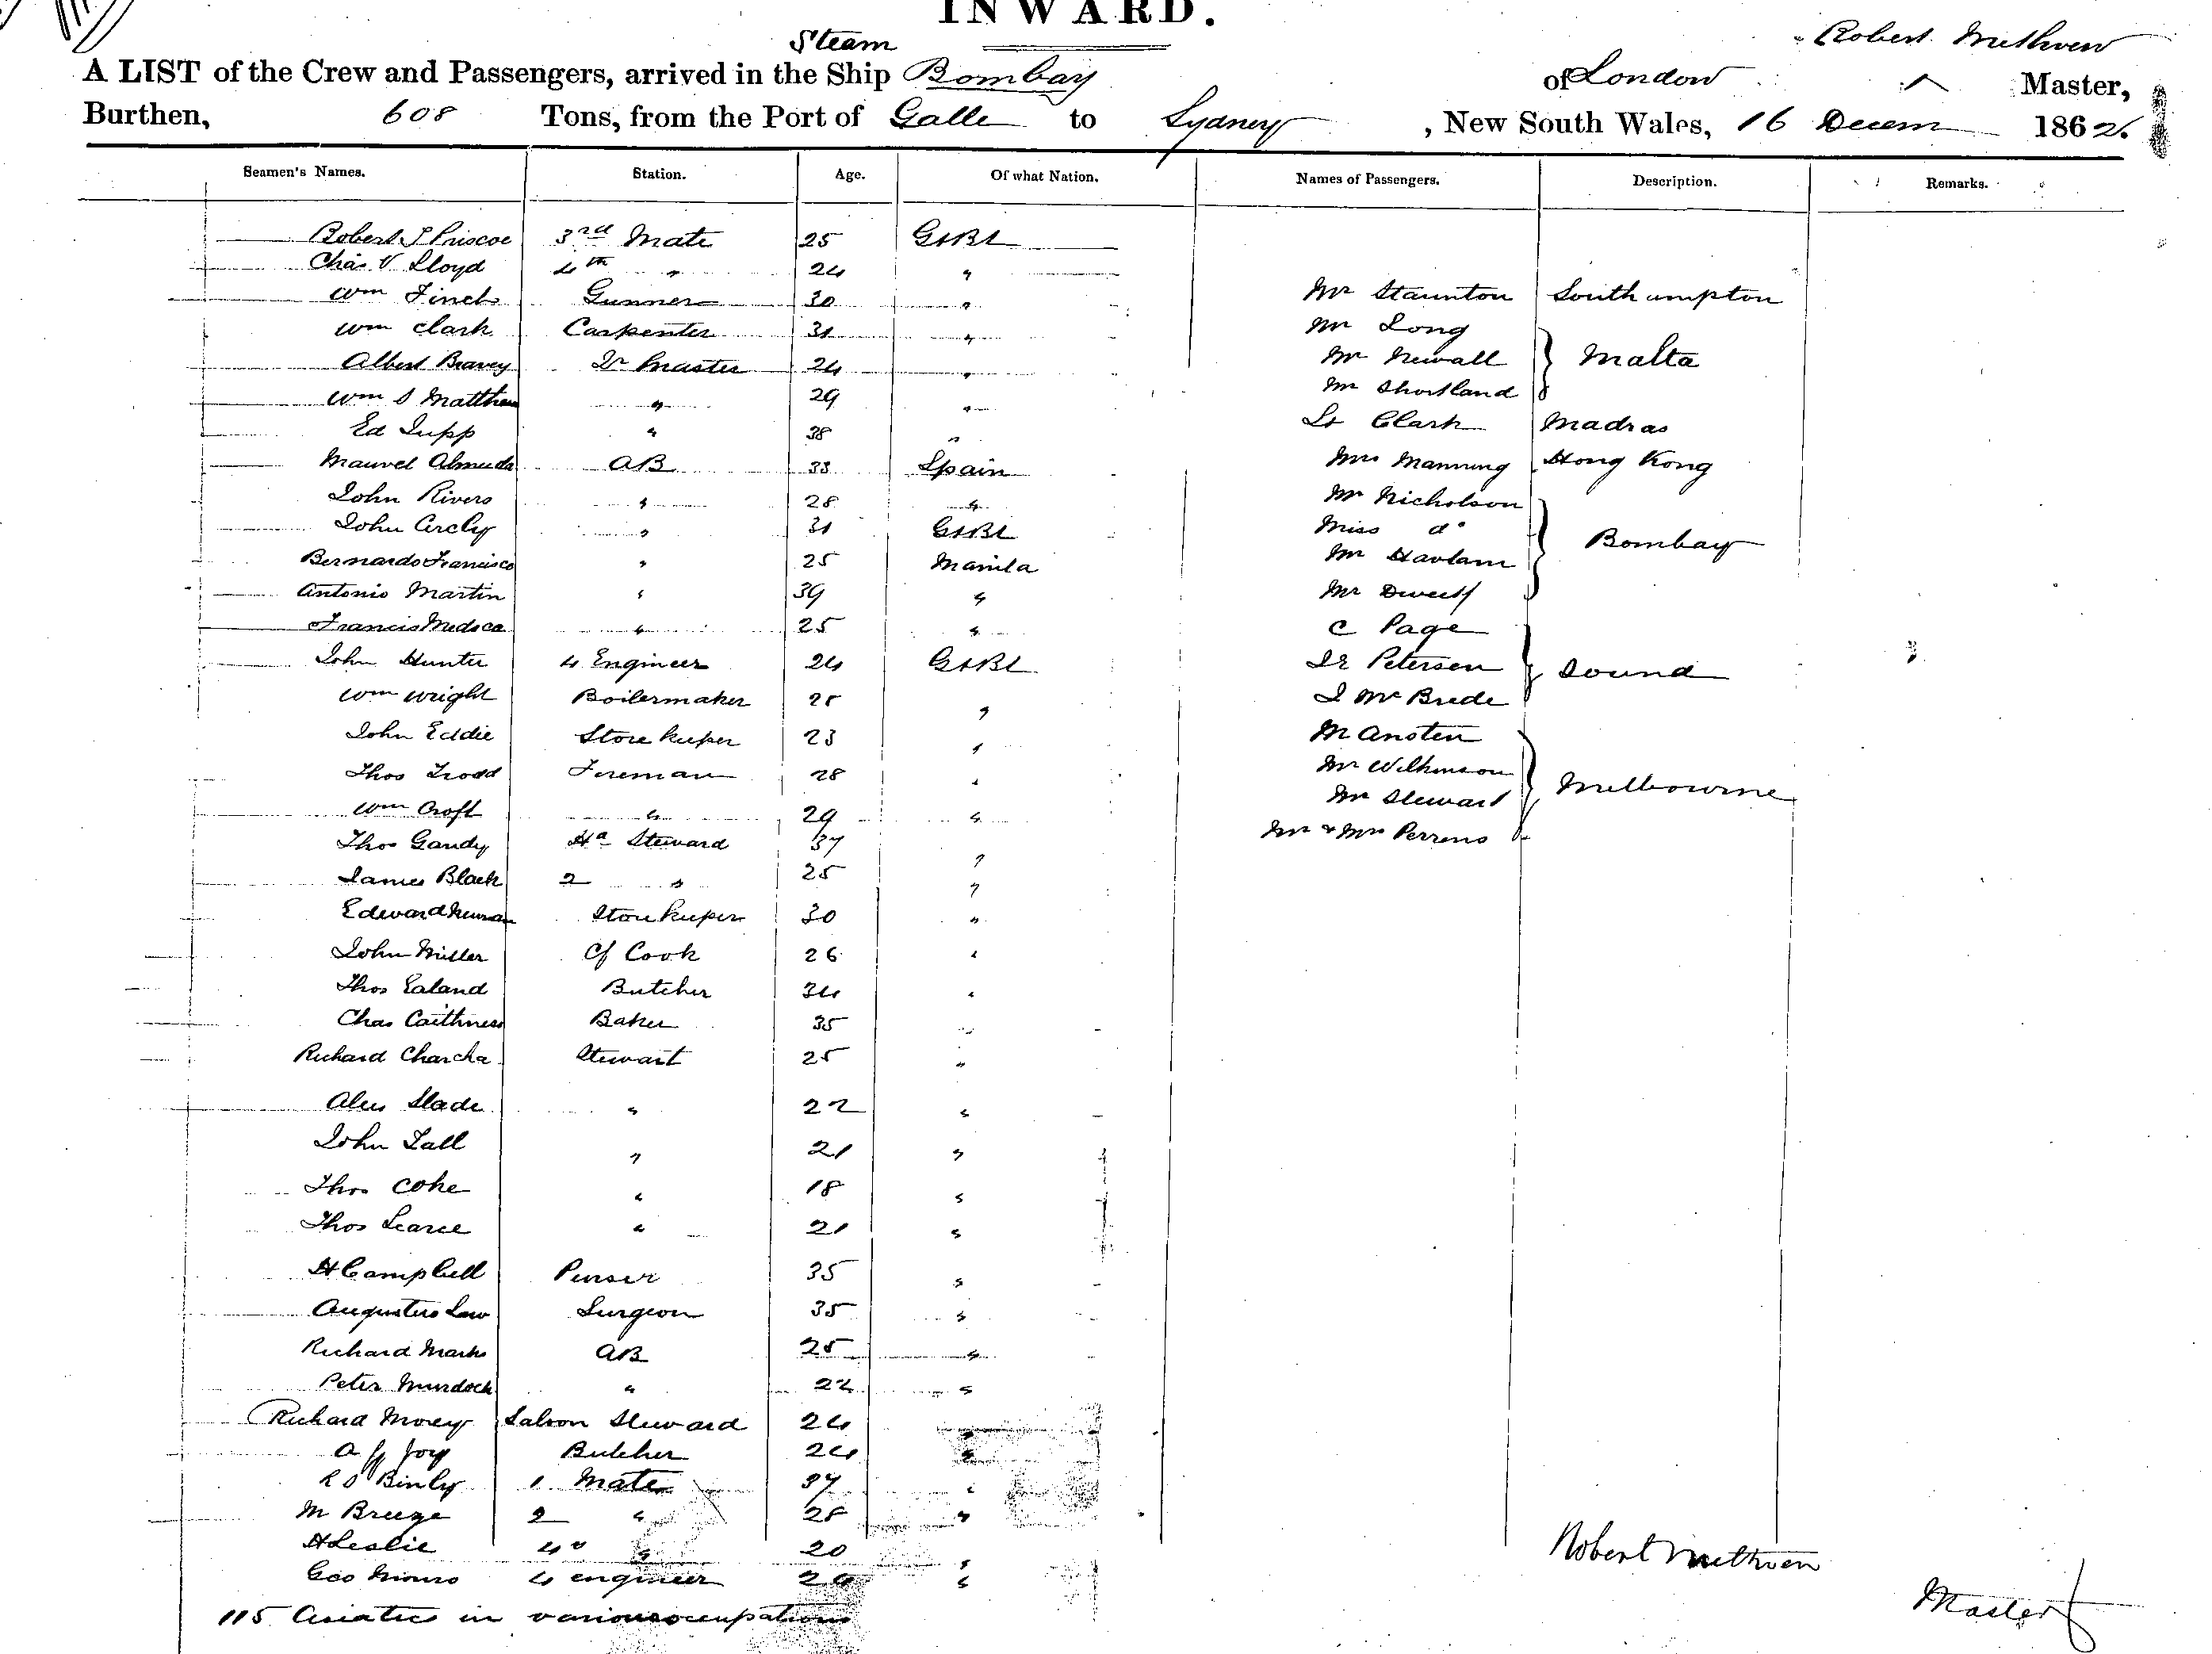 INWARD.
Steam
Robert Methven
A LIST of the Crew and Passengers, arrived in the Ship Bombay of London Master,
Burthen, 608 Tons, from the Port of Galle to Sydney, New South Wales, 16 Decem 1862.
Seamen's Names. Station. Age. Of what Nation. Names of Passengers. Description. Remarks.
Robert J Priscoe 3rd Mate 25 GtBt
Chas V Lloyd 4th " 24 "
Wm Finch Gunner 30 " Mr Staunton Southampton
Wm Clark Carpenter 31 " Mr Long
Albert Beavey Qr Master 24 " Mr Newall Malta
Wm S Matthew " 29 " Mr Shortland
Ed Jupp " 38 " Lt Clark Madras
Manvel Almeda AB 33 Spain Mrs Manning Hong Kong
John Rivers " 28 " Mr Nicholson
John " 31 GtBt Miss do
Bernardo Francisco " 25 Manila Mr Havlam Bombay
Antonio Martin " 39 " Mr
Francis Medoca " 25 " C Page
John Hunter 4 Engineer 24 GtBt Petersen Sound
Wm Wright Boilermaker 25 " J McBrede
John Eddie Store keeper 23 " M Ansten
Thos Trodd Fireman 28 " Mr Wilkinson
Wm Croft " 29 " Mr Stewart Melbourne
Thos Gandy Hd Steward 37 " Mr & Mrs Perrens
James Black 2 " 25 "
Edward Newman Storekeeper 30 "
John Miller Cf Cook 26 "
Thos Ealand Butcher 34 "
Chas Caithness Baker 35 "
Richard Charcha Stewart 25 "
Alex Slade " 22 "
John Tall " 21 "
Thos Coke " 18 "
Thos Searce " 21 "
H Campbell Purser 35 "
Augustus Law Surgeon 35 "
Richard Marks AB 25 "
Peter Murdoch " 22 "
Richard Morey Saloon Steward 24 "
A Joy Butcher 24 "
R S Binly 1 Mate 37 "
M Breeze 2 " 28 "
H Leslie 4th " 20 "
Geo Munro 4 engineer 24 "
115 Asiatics in various occupations
Robert Methven
Master